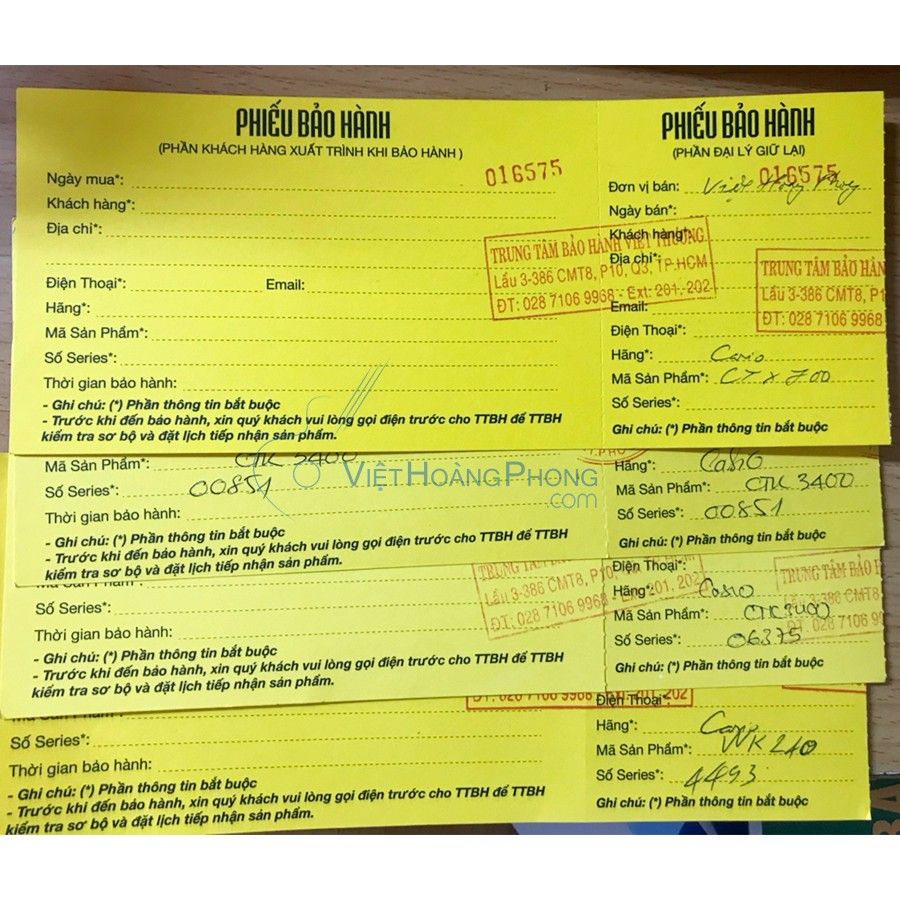 PHIẾU BẢO HÀNH
(PHẦN KHÁCH HÀNG XUẤT TRÌNH KHI BẢO HÀNH)
016575
Ngày mua*:
Khách hàng*:
Địa chỉ*:
Điện Thoại*: Email:
Hãng*:
Mã Sản Phẩm*:
Số Series*:
Thời gian bảo hành:
- Ghi chú: (*) Phần thông tin bắt buộc
- Trước khi đến bảo hành, xin quý khách vui lòng gọi điện trước cho TTBH để TTBH
kiểm tra sơ bộ và đặt lịch tiếp nhận sản phẩm.
TRUNG TÂM BẢO HÀNH VIỆT THƯƠNG
Lầu 3-386 CMT8, P10, Q3, TP.HCM
ĐT: 028 7106 9968 - Ext: 201, 202
PHIẾU BẢO HÀNH
(PHẦN ĐẠI LÝ GIỮ LẠI)
016575
Đơn vị bán: Việt Hoàng Phong
Ngày bán*:
Khách hàng*:
Địa chỉ*:
Email:
Điện Thoại*:
Hãng*: Casio
Mã Sản Phẩm*: CT X 700
Số Series*:
Ghi chú: (*) Phần thông tin bắt buộc
TRUNG TÂM BẢO HÀN
Lầu 3-386 CMT8, P1
ĐT: 028 7106 9968
VIỆTHOÀNGPHONG
.com
Mã Sản Phẩm*: CTK 3400
Số Series*: 00851
Thời gian bảo hành:
- Ghi chú: (*) Phần thông tin bắt buộc
- Trước khi đến bảo hành, xin quý khách vui lòng gọi điện trước cho TTBH để TTBH
kiểm tra sơ bộ và đặt lịch tiếp nhận sản phẩm.
Hãng*: Casio
Mã Sản Phẩm*: CTK 3400
Số Series*: 00851
Ghi chú: (*) Phần thông tin bắt buộc
Mã Sản Phẩm*:
Số Series*:
Thời gian bảo hành:
- Ghi chú: (*) Phần thông tin bắt buộc
- Trước khi đến bảo hành, xin quý khách vui lòng gọi điện trước cho TTBH để TTBH
kiểm tra sơ bộ và đặt lịch tiếp nhận sản phẩm.
TRUNG TÂM
Lầu 3-386 CMT8, P10
ĐT: 028 7106 9968 - Ext: 201, 202
Điện Thoại*:
Hãng*: Casio
Mã Sản Phẩm*: CTK 3400
Số Series*: 06375
Ghi chú: (*) Phần thông tin bắt buộc
TRUNG TÂM BẢO H
Lầu 3-386 CMT8
ĐT: 028 7106 9
Mã Sản Phẩm*:
Số Series*:
Thời gian bảo hành:
- Ghi chú: (*) Phần thông tin bắt buộc
- Trước khi đến bảo hành, xin quý khách vui lòng gọi điện trước cho TTBH để TTBH
kiểm tra sơ bộ và đặt lịch tiếp nhận sản phẩm.
ĐT: 028 7106 9968 - Ext: 201, 202
Điện Thoại*:
Hãng*: Casio
Mã Sản Phẩm*: WK 240
Số Series*: 4493
Ghi chú: (*) Phần thông tin bắt buộc